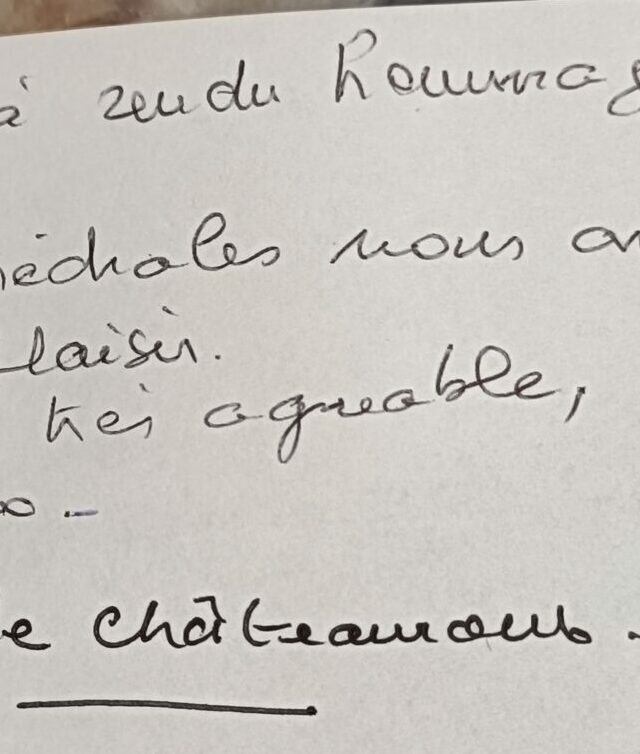 à rendu hommag
échales nous on
laisir.
très agreable,
e châteauroux.